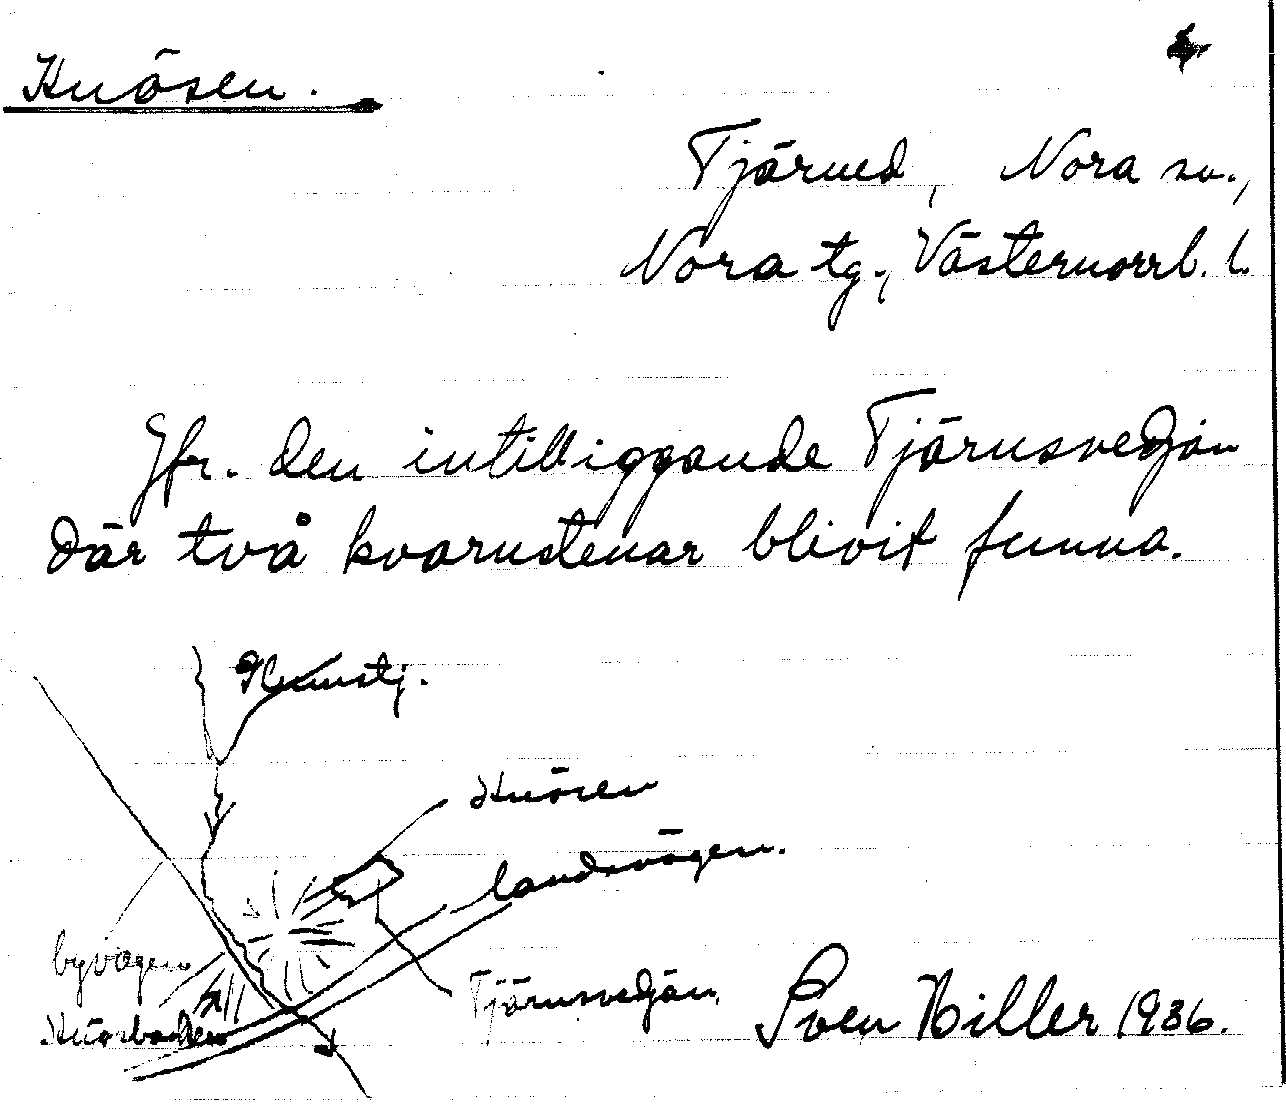 Knösen.
Tjärned, Nora sn.,
Nora tg., Västernorrl. l.
Jfr. den intilliggande Tjärnsvedjan
där två kvarnstenar blivit funna.
Knösen
landsvägen.
byvägen
Tjärnsvedjan
Knösbacken
Sven Hiller 1936.